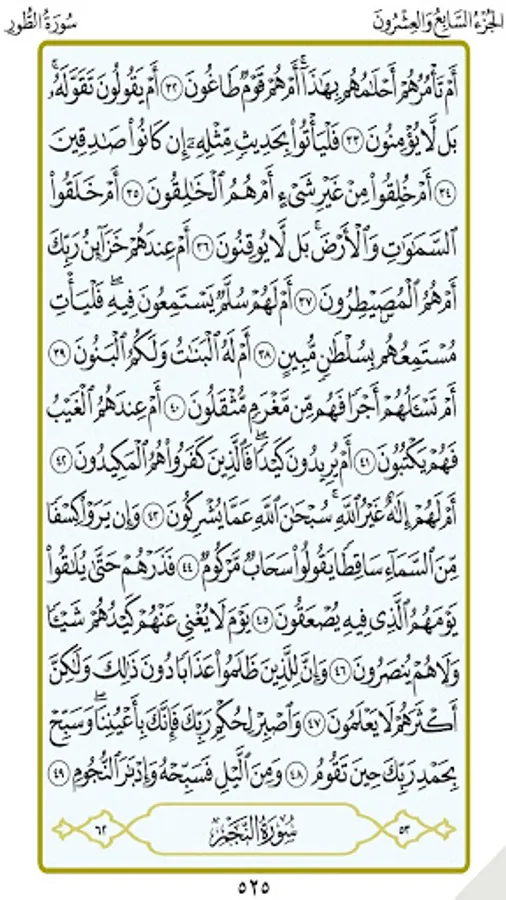 الجُزْءُ السَّابِعُ وَالعِشْرُونَ
سُورَةُ الطُّورِ
أَمْ تَأْمُرُهُمْ أَحْلَٰمُهُم بِهَٰذَآۚ أَمْ هُمْ قَوْمٌ طَاغُونَ ٣٢ أَمْ يَقُولُونَ تَقَوَّلَهُۥۚ
بَل لَّا يُؤْمِنُونَ ٣٣ فَلْيَأْتُوا۟ بِحَدِيثٍ مِّثْلِهِۦٓ إِن كَانُوا۟ صَٰدِقِينَ
٣٤ أَمْ خُلِقُوا۟ مِنْ غَيْرِ شَىْءٍ أَمْ هُمُ الْخَٰلِقُونَ ٣٥ أَمْ خَلَقُوا۟
السَّمَٰوَٰتِ وَالْأَرْضَۚ بَل لَّا يُوقِنُونَ ٣٦ أَمْ عِندَهُمْ خَزَآئِنُ رَبِّكَ
أَمْ هُمُ الْمُصَۣيْطِرُونَ ٣٧ أَمْ لَهُمْ سُلَّمٌ يَسْتَمِعُونَ فِيهِۖ فَلْيَأْتِ
مُسْتَمِعُهُم بِسُلْطَٰنٍ مُّبِينٍ ٣٨ أَمْ لَهُ الْبَنَٰتُ وَلَكُمُ الْبَنُونَ ٣٩
أَمْ تَسْـَٔلُهُمْ أَجْرًا فَهُم مِّن مَّغْرَمٍ مُّثْقَلُونَ ٤٠ أَمْ عِندَهُمُ الْغَيْبُ
فَهُمْ يَكْتُبُونَ ٤١ أَمْ يُرِيدُونَ كَيْدًاۖ فَالَّذِينَ كَفَرُوا۟ هُمُ الْمَكِيدُونَ ٤٢
أَمْ لَهُمْ إِلَٰهٌ غَيْرُ اللَّهِۚ سُبْحَٰنَ اللَّهِ عَمَّا يُشْرِكُونَ ٤٣ وَإِن يَرَوْا۟ كِسْفًا
مِّنَ السَّمَآءِ سَاقِطًا يَقُولُوا۟ سَحَابٌ مَّرْكُومٌ ٤٤ فَذَرْهُمْ حَتَّىٰ يُلَٰقُوا۟
يَوْمَهُمُ الَّذِى فِيهِ يُصْعَقُونَ ٤٥ يَوْمَ لَا يُغْنِى عَنْهُمْ كَيْدُهُمْ شَيْـًٔا
وَلَا هُمْ يُنصَرُونَ ٤٦ وَإِنَّ لِلَّذِينَ ظَلَمُوا۟ عَذَابًا دُونَ ذَٰلِكَ وَلَٰكِنَّ
أَكْثَرَهُمْ لَا يَعْلَمُونَ ٤٧ وَاصْبِرْ لِحُكْمِ رَبِّكَ فَإِنَّكَ بِأَعْيُنِنَاۖ وَسَبِّحْ
بِحَمْدِ رَبِّكَ حِينَ تَقُومُ ٤٨ وَمِنَ الَّيْلِ فَسَبِّحْهُ وَإِدْبَٰرَ النُّجُومِ ٤٩
٥٣ سُورَةُ النَّجْمِ ٦٢
٥٢٥